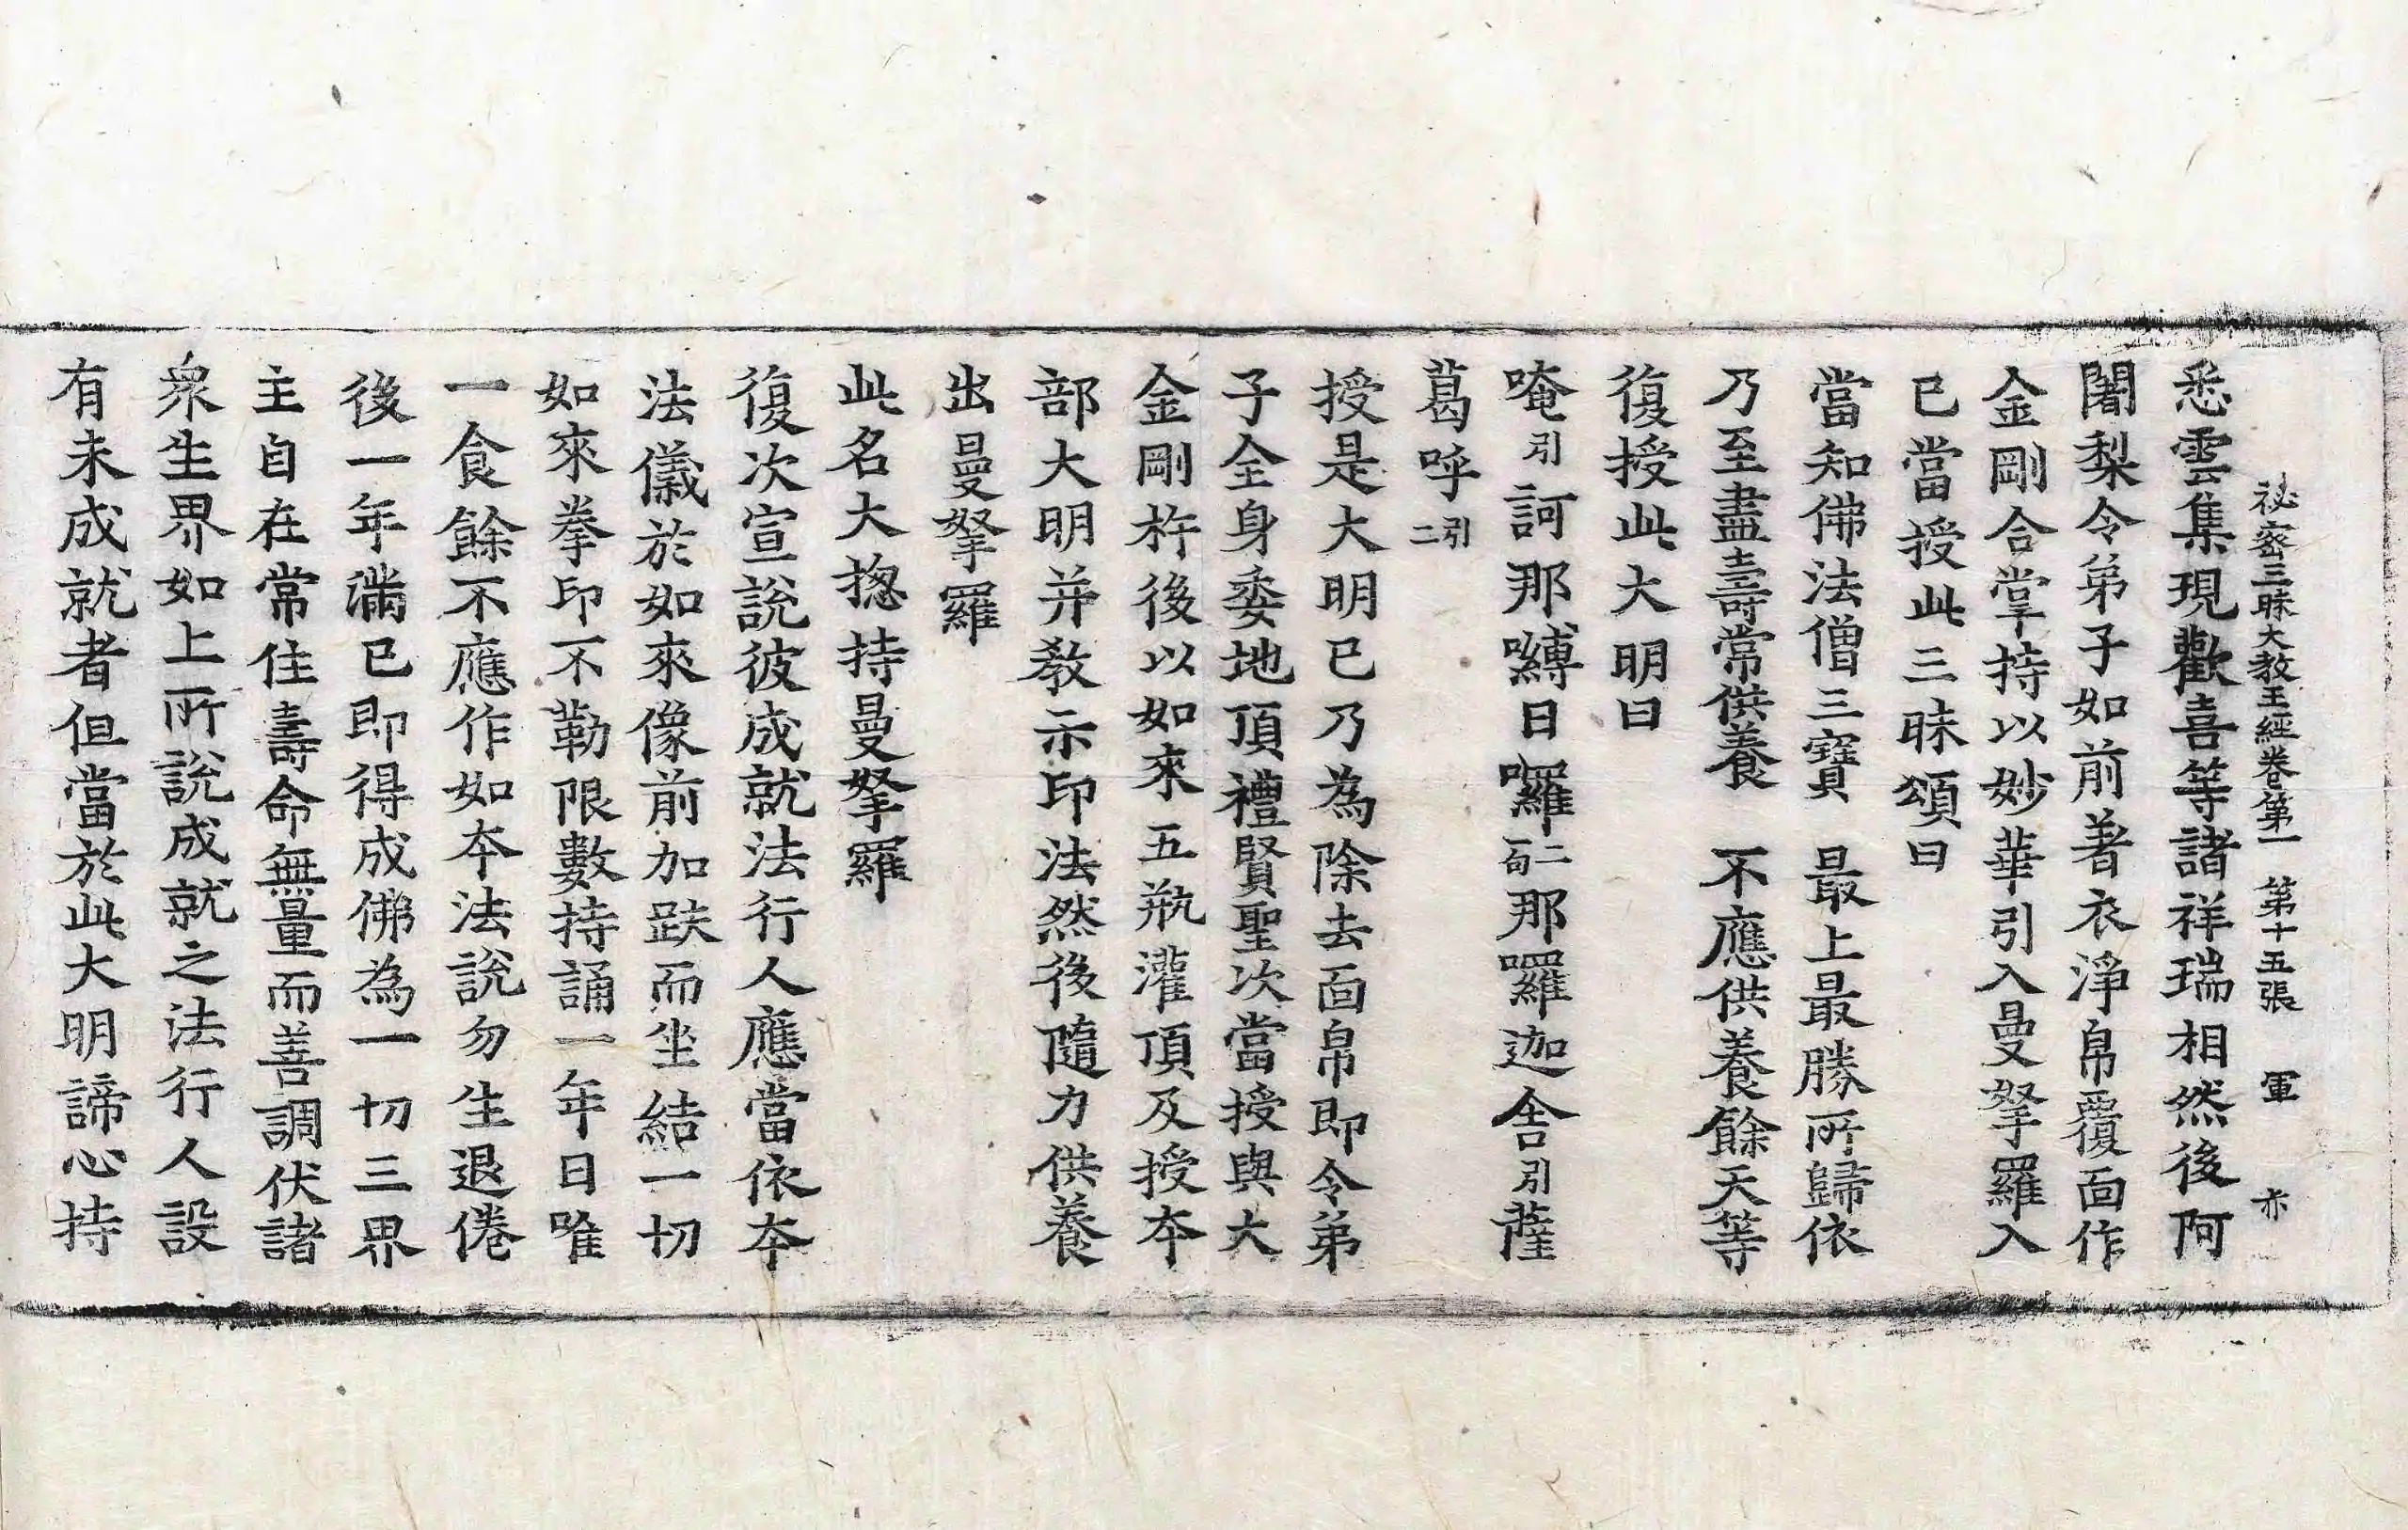 祕密三昧大教王經卷第一　第十五張　軍　亦
悉雲集現歡喜等諸祥瑞相然後阿
闍梨令弟子如前著衣淨帛覆面作
金剛合掌持以妙華引入曼拏羅入
已當授此三昧頌曰
當知佛法僧三寶　最上最勝所歸依
乃至盡壽常供養　不應供養餘天等
復授此大明曰
唵引訶那嚩日囉二合那囉迦舍引薩
葛呼引二
授是大明已乃為除去面帛即令弟
子全身委地頂禮賢聖次當授與大
金剛杵後以如來五瓶灌頂及授夲
部大明并教示印法然後隨力供養
出曼拏羅
此名大揔持曼拏羅
復次宣說彼成就法行人應當依夲
法儀於如來像前加趺而坐結一切
如來拳印不勒限數持誦一年日唯
一食餘不應作如夲法說勿生退倦
後一年滿已即得成佛為一切三界
主自在常住壽命無量而善調伏諸
衆生界如上所說成就之法行人設
有未成就者但當於此大明諦心持